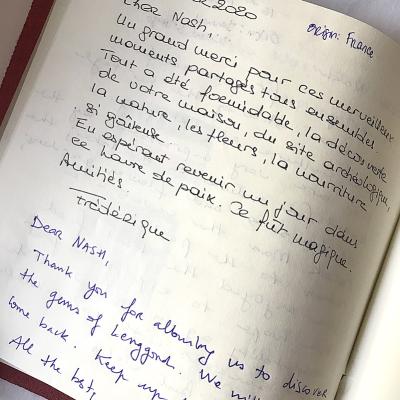 2020
origin: France
Cher Nash,
Un grand merci pour ces merveilleux
moments partagés tous ensembles
Tout a été formidable, la découverte
de votre maison, du site archéologique,
la nature, les fleurs, la nourriture
si goûteuse.
En espérant revenir un jour dans
ce havre de paix. Ce fut magique.
Amitiés.
Frédérique
Dear NASH,
Thank you for allowing us to discover
the gems of Lenggong. We will
come back. Keep up
All the best,